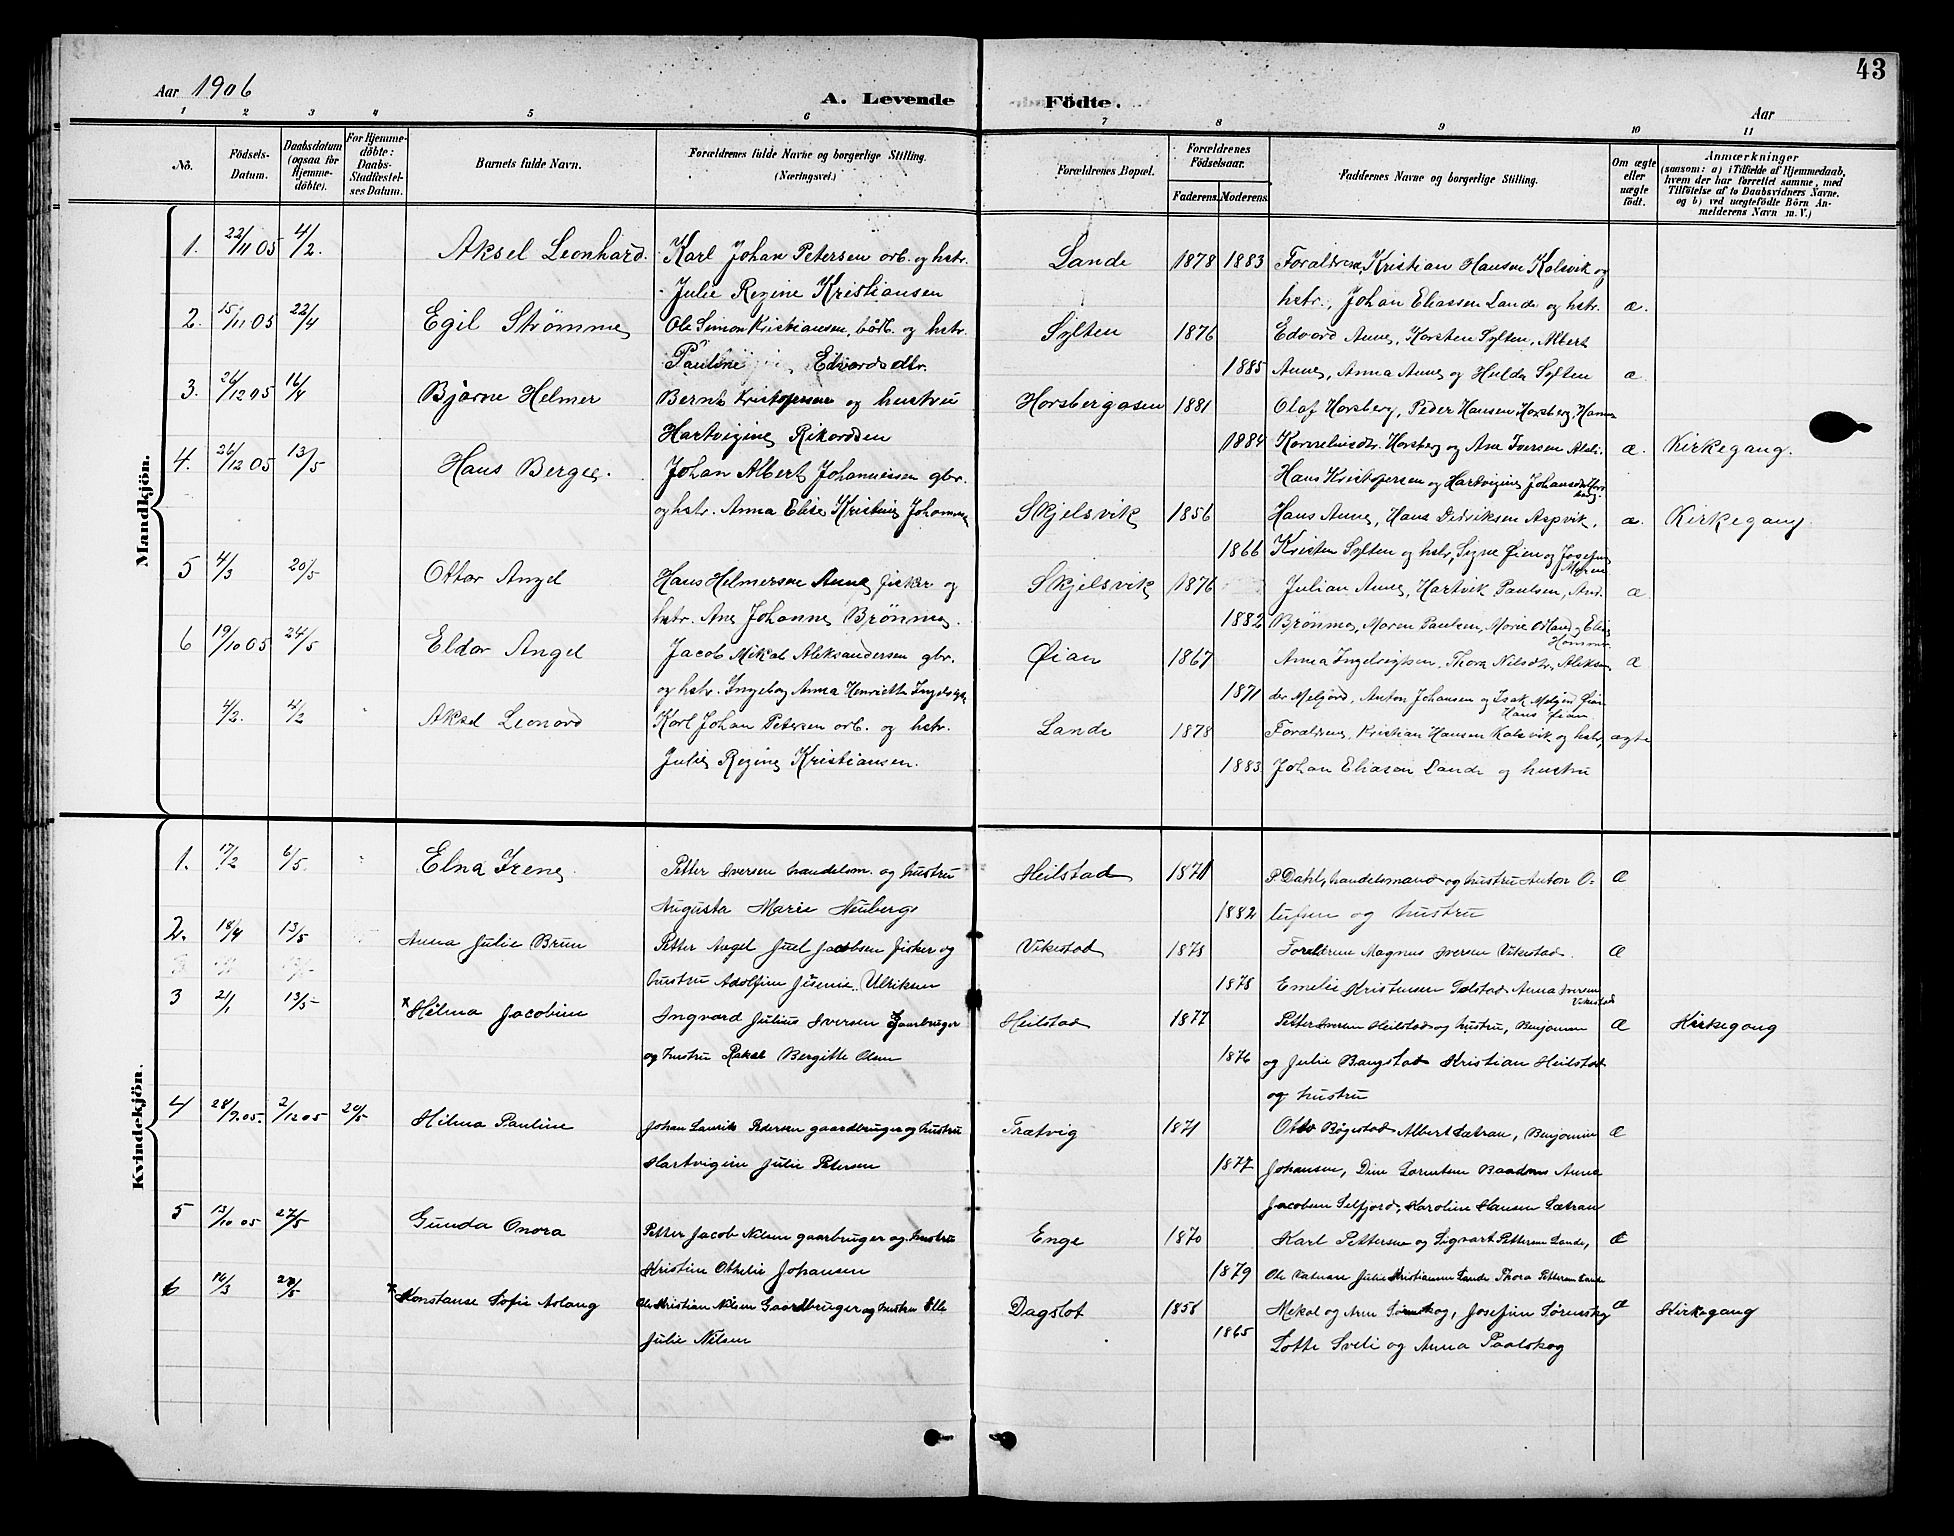 43
Aar 1906 A. Levende Födte. Aar
1 2 3 4 5 6 7 8 9 10 11
No. Födsels-Datum. Daabsdatum (ogsaa for Hjemmedöbte). For Hjemmedöbte: Daabs-Stadfæstelses Datum. Barnets fulde Navn. Forældrenes fulde Navne og borgerlige Stilling. (Næringsvei.) Forældrenes Bopæl. Forældrenes Födselsaar. Faderens. Moderens. Faddernes Navne og borgerlige Stilling. Om ægte eller uægte födt. Anmærkninger (saasom: a) i Tilfælde af Hjemmedaab, hvem der har forrettet samme, med Tilföielse af to Daabsvidners Navne, og b) ved uægtefödte Börn Anmelderens Navn m. V.)
Mandkjön.
1. 22/11 05 4/2. Aksel Leonhard. Karl Johan Petersen arb. og hstr. Lande 1878 1883 Forældrene, Kristian Hansen Kalsvik og
Julie Regine Kristiansen hstr., Johan Eliassen Lande og hstr. æ.
2. 15/11 05 22/4 Egil Strømme Ole Simon Kristiansen, og hstr. Sylten 1876 Edvard Aune, Karsten Sylten, Albert
Pauline Edvardsdtr. 1885 Aune, Anna Aune og Hulda Sylten æ
3. 26/12 05 16/4 Bjarne Helmer Bernt Kristofersen og hustru Horsbergaasen 1881 Olaf Horsberg, Peder Hansen Horsberg, Hanna
Hartvigine Rikardsen 1884 Kornelius dtr. Horsberg og Ane Iversen æ. Kirkegang.
4. 26/12 05 13/5 Hans Berger. Johan Albert Johannessen gbr. Hans Kristofersen og Hartvigine Johansdtr.
og hstr. Anna Elise Kristine Johannes Skjelsvik 1856 Hans Aune, Hans Didriksen Aspvik, æ. Kirkegang
1866 Kristen Sylten og hstr, Signe Øien og Josefine
5 4/3 20/5 Ottar Angel Hans Helmersen Aune fisker og Skjelsvik 1876 Julian Aune, Hartvik Paulsen, And. æ
hstr. Ane Johanne Brønmo. 1882 Brønmo, Maren Paulsen, Marie
6 19/10 05 24/5 Eldar Angel Jacob Mikal Aleksandersen gbr. Øian 1867 Anna Ingebrigtsen, Thora Nilsdtr. Aleksan æ
og hstr. Ingeborg Anna Henriette 1871 der Meljord, Anton Johansen og Isak
Hans Øian.
4/2. 4/2 Aksel Leonard Karl Johan Petersen arb. og hstr. Lande 1878 Forældrene, Kristian Hansen Kalsvik og hstr, ægte
Julie Regine Kristiansen. 1883 Johan Eliasen Lande og hustru
Kvindekjön.
1. 17/2 6/5 Elna Irene Petter Iversen handelsm. og hustru Heilstad 1871 P. Dahl, handelsmand og hustru Anton O- Æ
Augusta Marie Neuberg 1882 lufsen og hustru
2. 18/4 13/5 Anna Julie Brun Petter Angel Juel Jacobsen fisker og Vikestad 1878 Forældrene Magnus Iversen Vikestad. Æ
hustru Adolfine Ulriksen 1878 Emelie Kristensen Anna Iversen Vikestad
3 21/1 13/5 Hilma Jacobine Ingvard Julius Iversen Gaarbruger Heilstad 1877 Petter Iversen Heilstad og hustru, Benjamin Æ Kirkegang
og hustru Rakel Bergitte Olsen 1876 og Julie Bangstad Kristian Heilstad
og hustru
4 28/9.05. 2/12 05 20/5 Hilma Pauline Johan Laurits Pedersen gaardbruger og hustru Trætvig 1871 Otto Bøgestad Albert Sætran, Benjamin Æ
Hartvigine Julie Petersen 1877 Johansen, Dine Lorentsen Anna
Jacobsen Selfjord, Karoline Hansen Sætran
5 13/10 05 27/5 Gunda Onora Petter Jacob Nilsen gaarbruger og hustru Enge 1870 Karl Pettersen og Sigvart Pettersen Lande, Æ
Kristine Othelie Johansen 1879 Ole Julie Kristiansen Lande Thora Pettersen Lande
6 16/3 27/5 Konstanse Sofie Aslaug Ole Kristian Nilsen Gaardbruger og hustru Elle Dagslot 1858 Mekal og Arne Josefine Æ Kirkegang
Julie Nilsen 1865 Lotte Sveli og Anna Paalskog